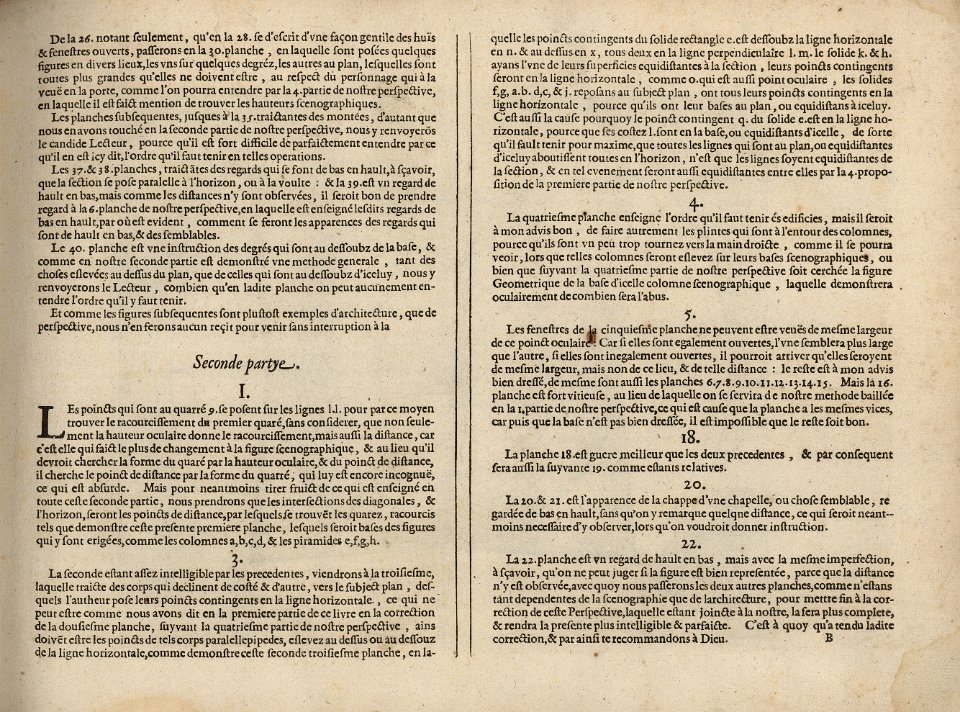 De la 26. notant seulement, qu'en la 28. se d'escrit d'vne façon gentile des huis
& fenestres ouverts, passerons en la 30. planche, en laquelle sont posées quelques
figures en divers lieux, les vns sur quelques degréz, les autres au plan, lesquelles sont
toutes plus grandes qu'elles ne doivent estre, au respect du personnage qui à la
veuë en la porte, comme l'on pourra entendre par la 4. partie de nostre perspective,
en laquelle il est faict mention de trouver les hauteurs scenographiques.
Les planches subsequentes, jusques à la 35. traictantes des montées, d'autant que
nous en avons touché en la seconde partie de nostre perspective, nous y renvoyerōs
le candide Lecteur, pource qu'il est fort difficile de parfaictement entendre par ce
qu'il en est icy dit, l'ordre qu'il faut tenir en telles operations.
Les 37. & 38. planches, traictātes des regards qui se font de bas en hault, à sçavoir,
que la section se pose paralelle à l'horizon, ou à la voulte : & la 39. est vn regard de
hault en bas, mais comme les distances n'y sont observées, il seroit bon de prendre
regard à la 6. planche de nostre perspective, en laquelle est enseigné lesdits regards de
bas en hault, par où est evident, comment se feront les apparences des regards qui
sont de hault en bas, & des semblables.
Le 40. planche est vne instruction des degrés qui sont au dessoubz de la base, &
comme en nostre seconde partie est demonstré vne methode generale, tant des
choses eslevées au dessus du plan, que de celles qui sont au dessoubz d'iceluy, nous y
renvoyerons le Lecteur, combien qu'en ladite planche on peut aucunement en-
tendre l'ordre qu'il y faut tenir.
Et comme les figures subsequentes sont plustost exemples d'architecture, que de
perspective, nous n'en ferons aucun reçit pour venir sans interruption à la
Seconde partye.
1.
LEs poincts qui sont au quarré 9. se posent sur les lignes l.l. pour par ce moyen
trouver le racourcissement du premier quaré, sans considerer, que non seule-
ment la hauteur oculaire donne le racourcissement, mais aussi la distance, car
c'est elle qui faict le plus de changement à la figure scenographique, & au lieu qu'il
devroit chercher la forme du quaré par la hauteur oculaire, & du poinct de distance,
il cherche le poinct de distance par la forme du quarré, qui luy est encore incognuë,
ce qui est absurde. Mais pour neantmoins tirer fruict de ce qui est enseigné en
toute ceste seconde partie, nous prendrons que les intersections des diagonales, &
l'horizon, seront les poincts de distance, par lesquels se trouvēt les quarez, racourcis
tels que demonstre ceste presente premiere planche, lesquels seroit bases des figures
qui y sont erigées, comme les colomnes a, b, c, d, & les piramides e, f, g, h.
3.
La seconde estant assez intelligible par les precedentes, viendrons à la troisiesme,
laquelle traicte des corps qui declinent de costé & d'autre, vers le subject plan, des-
quels l'autheur pose leurs poincts contingents en la ligne horizontale, ce qui ne
peut estre comme nous avons dit en la premiere partie de ce livre en la correction
de la dousiesme planche, suyvant la quatriesme partie de nostre perspective, ains
doivēt estre les poincts de tels corps paralellepipedes, eslevez au dessus ou au dessouz
de la ligne horizontale, comme demonstre ceste seconde troisiesme planche, en la-
quelle les poincts contingents du solide rectangle e. est dessoubz la ligne horizontale
en n. & au dessus en x, tous deux en la ligne perpendiculaire l. m. le solide k. & h.
ayans l'vne de leurs superficies equidistantes à la section, leurs poincts contingents
seront en la ligne horizontale, comme o. qui est aussi point oculaire, les solides
f, g, a. b. d, c, & j. reposans au subject plan, ont tous leurs poincts contingents en la
ligne horizontale, pource qu'ils ont leur bases au plan, ou equidistans à iceluy.
C'est aussi la cause pourquoy le poinct contingent q. du solide e. est en la ligne ho-
rizontale, pource que ses costez l. sont en la base, ou equidistans d'icelle, de sorte
qu'il fault tenir pour maxime, que toutes les lignes qui sont au plan, ou equidistantes
d'iceluy aboutissent toutes en l'horizon, n'est que les lignes soyent equidistantes de
la section, & en tel evenement seront aussi equidistantes entre elles par la 4. propo-
sition de la premiere partie de nostre perspective.
4.
La quatriesme planche enseigne l'ordre qu'il faut tenir és edificies, mais il seroit
à mon advis bon, de faire autrement les plintes qui sont à l'entour des colomnes,
pource qu'ils sont vn peu trop tournez vers la main droicte, comme il se pourra
veoir, lors que telles colomnes seront eslevez sur leurs bases scenographiques, ou
bien que suyvant la quatriesme partie de nostre perspective soit cerchée la figure
Geometrique de la base d'icelle colomne scenographique, laquelle demonstrera
oculairement de combien sera l'abus.
5.
Les fenestres de la cinquiesme planche ne peuvent estre veuës de mesme largeur
de ce poinct oculaire: Car si elles sont egalement ouvertes, l'vne semblera plus large
que l'autre, si elles sont inegalement ouvertes, il pourroit arriver qu'elles seroyent
de mesme largeur, mais non de ce lieu, & de telle distance : le reste est à mon advis
bien dressé, de mesme sont aussi les planches 6.7.8.9.10.11.12.13.14.15. Mais la 16.
planche est fort vitieuse, au lieu de laquelle on se servira de nostre methode baillée
en la 1, partie de nostre perspective, ce qui est cause que la planche a les mesmes vices,
car puis que la base n'est pas bien dressée, il est impossible que le reste soit bon.
18.
La planche 18. est guere meilleur que les deux precedentes, & par consequent
sera aussi la suyvante 19. comme estants relatives.
20.
La 20. & 21. est l'apparence de la chappe d'vne chapelle, ou chose semblable, re
gardée de bas en hault, sans qu'on y remarque quelqne distance, ce qui seroit neant--
moins necessaire d'y observer, lors qu'on voudroit donner instruction.
22.
La 22. planche est vn regard de hault en bas, mais avec la mesme imperfection,
à sçavoir, qu'on ne peut juger si la figure est bien representée, parce que la distance
n'y est observée, avec quoy nous passerons les deux autres planches, comme n'estans
tant dependentes de la scenographie que de larchitecture, pour mettre fin à la cor-
rection de ceste Perspective, laquelle estant joincte à la nostre, la sera plus complete,
& rendra la presente plus intelligible & parfaicte. C'est à quoy qu'a tendu ladite
correction, & par ainsi te recommandons à Dieu. B